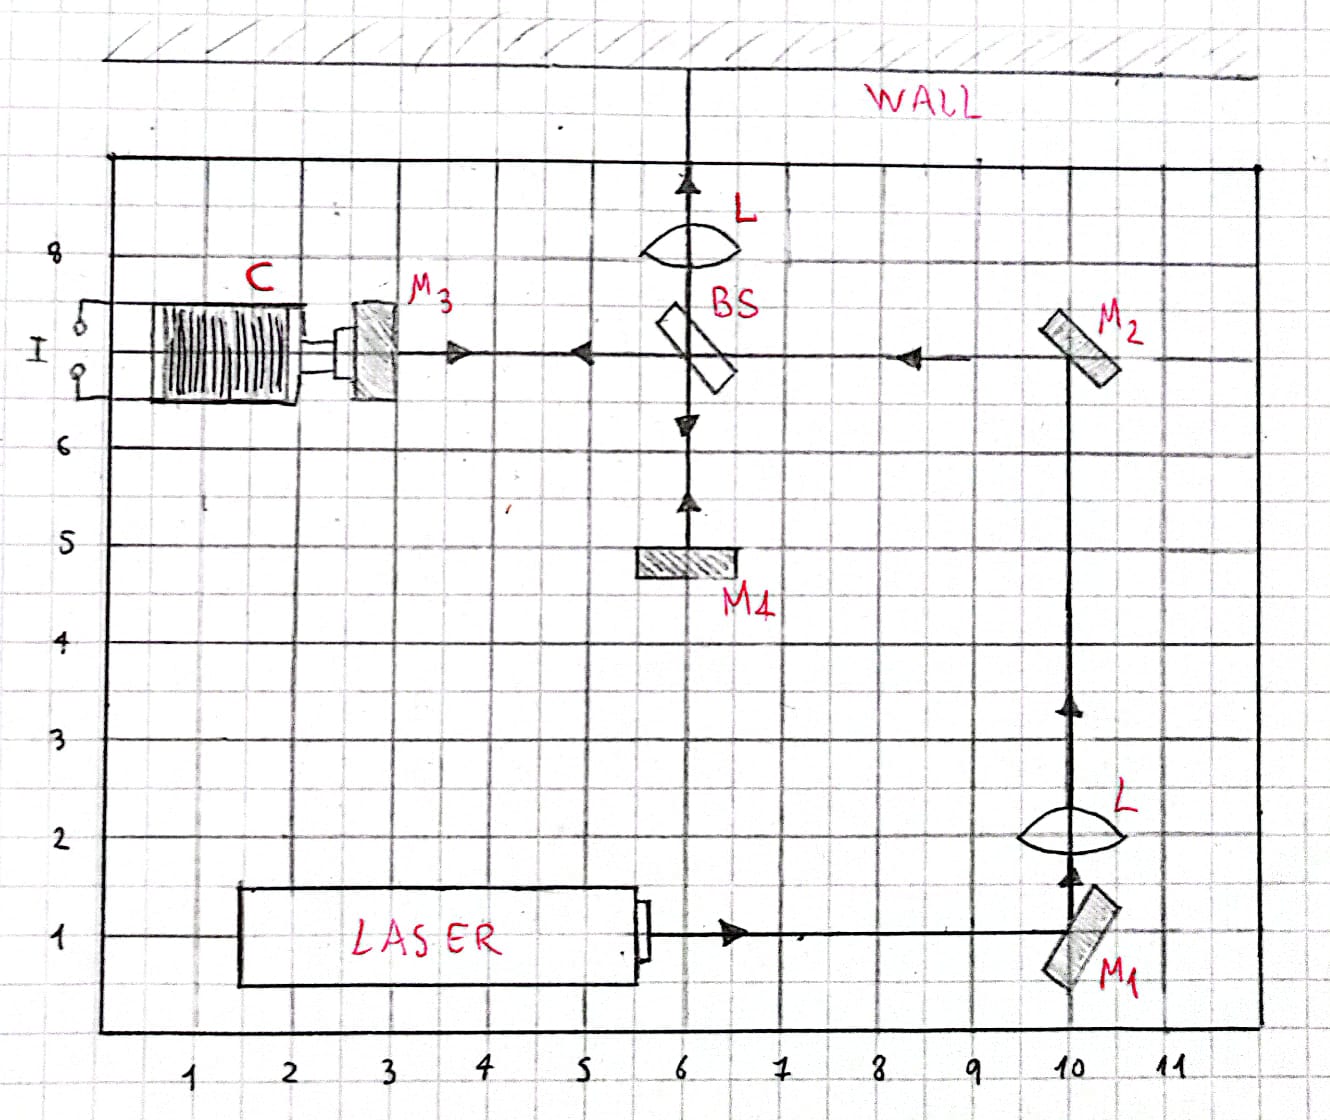 WALL
L
8
C
M3
BS
M2
I
6
5
M4
4
3
L
2
LASER
1
M1
1 2 3 4 5 6 7 8 9 10 11